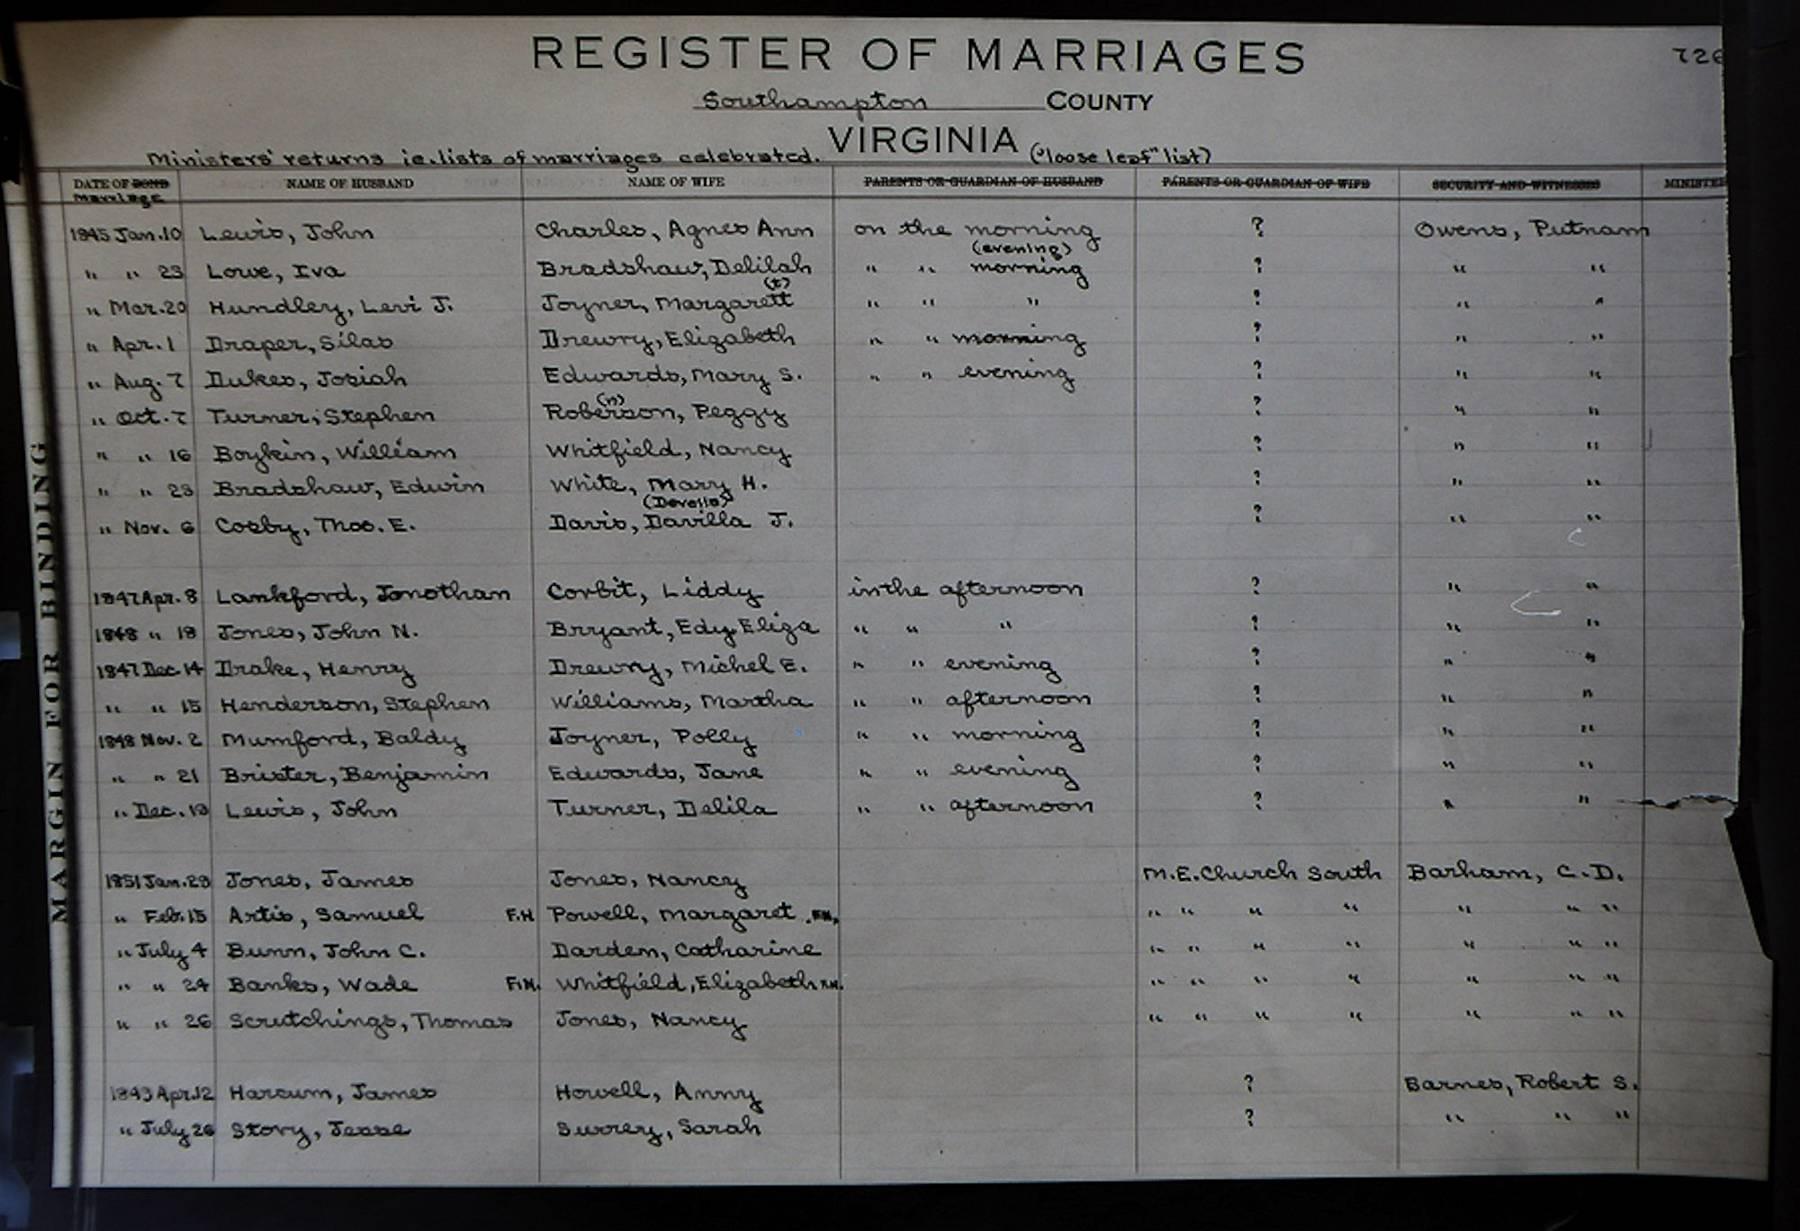 REGISTER OF MARRIAGES 726
Southampton COUNTY
VIRGINIA
Ministers' returns ie. lists of marriages celebrated. ("loose leaf" list)
DATE OF BOND NAME OF HUSBAND NAME OF WIFE PARENTS OR GUARDIAN OF HUSBAND PARENTS OR GUARDIAN OF WIFE SECURITY AND WITNESSES MINISTER
Marriage
1845 Jan. 10 Lewis, John Charles, Agnes Ann on the morning ? Owens, Putnam
(evening)
" " 23 Lowe, Iva Bradshaw, Delilah " " morning ? " "
(t)
" Mar. 20 Hundley, Levi J. Joyner, Margarett " " " ? " "
" Apr. 1 Draper, Silas Drewry, Elizabeth " " morning ? " "
" Aug. 7 Dukes, Josiah Edwards, Mary S. " " evening ? " "
(n)
" Oct. 7 Turner, Stephen Roberson, Peggy ? " "
" " 16 Boykin, William Whitfield, Nancy ? " "
" " 23 Bradshaw, Edwin White, Mary H. ? " "
" Nov. 6 Cosby, Thos. E. Davis, Davilla J. ? " "
1847 Apr. 8 Lankford, Jonothan Corbit, Liddy in the afternoon ? " "
1848 " 18 Jones, John N. Bryant, Edy Eliza " " " ? " "
1847 Dec. 14 Drake, Henry Drewry, Michel E. " " evening ? " "
" " 15 Henderson, Stephen Williams, Martha " " afternoon ? " "
1848 Nov. 2 Mumford, Baldy Joyner, Polly " " morning ? " "
" " 21 Brister, Benjamin Edwards, Jane " " evening ? " "
" Dec. 13 Lewis, John Turner, Delila " " afternoon ? " "
1851 Jan. 23 Jones, James Jones, Nancy M.E. Church South Barham, C.D.
" Feb. 15 Artis, Samuel F.N Powell, Margaret F.N. " " " " " " "
" July 4 Bunn, John C. Darden, Catharine " " " " " " "
" " 24 Banks, Wade F.N. Whitfield, Elizabeth F.N. " " " " " " "
" " 26 Scrutchings, Thomas Jones, Nancy " " " " " " "
1843 Apr. 12 Harcum, James Howell, Anny ? Barnes, Robert S.
" July 26 Story, Jesse Surrey, Sarah ? " " "
MARGIN FOR BINDING